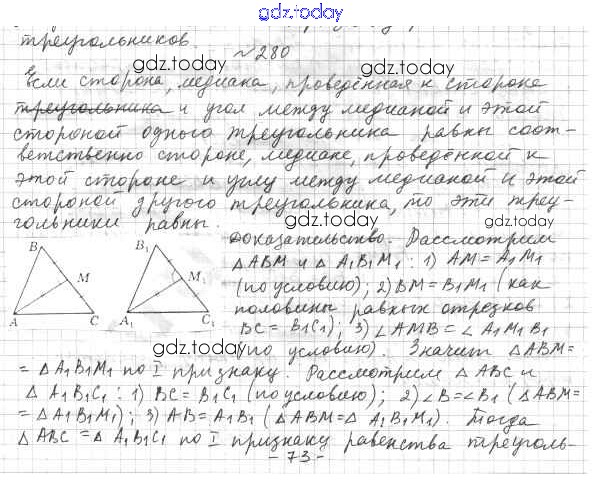 gdz.today
треугольников.
№ 280
Если сторона, медиана, проведённая к стороне
треугольника и угол между медианой и этой
стороной одного треугольника равны соот-
ветственно стороне, медиане, проведённой к
этой стороне и углу между медианой и этой
стороной другого треугольника, то эти треу-
гольники равны.
gdz.today
gdz.today
gdz.today
gdz.today
B M A C
B₁ M₁ A₁ C₁
Доказательство. Рассмотрим
△ABM и △A₁B₁M₁: 1) AM = A₁M₁
(по условию); 2) BM = B₁M₁ (как
половины равных отрезков
BC = B₁C₁); 3) ∠AMB = ∠A₁M₁B₁
(по условию). Значит △ABM =
= △A₁B₁M₁ по I признаку. Рассмотрим △ABC и
△A₁B₁C₁: 1) BC = B₁C₁ (по условию); 2) ∠B = ∠B₁ (△ABM =
= △A₁B₁M₁); 3) AB = A₁B₁ (△ABM = △A₁B₁M₁). Тогда
△ABC = △A₁B₁C₁ по I признаку равенства треуголь-
- 73 -
gdz.today
gdz.today
gdz.today
gdz.today